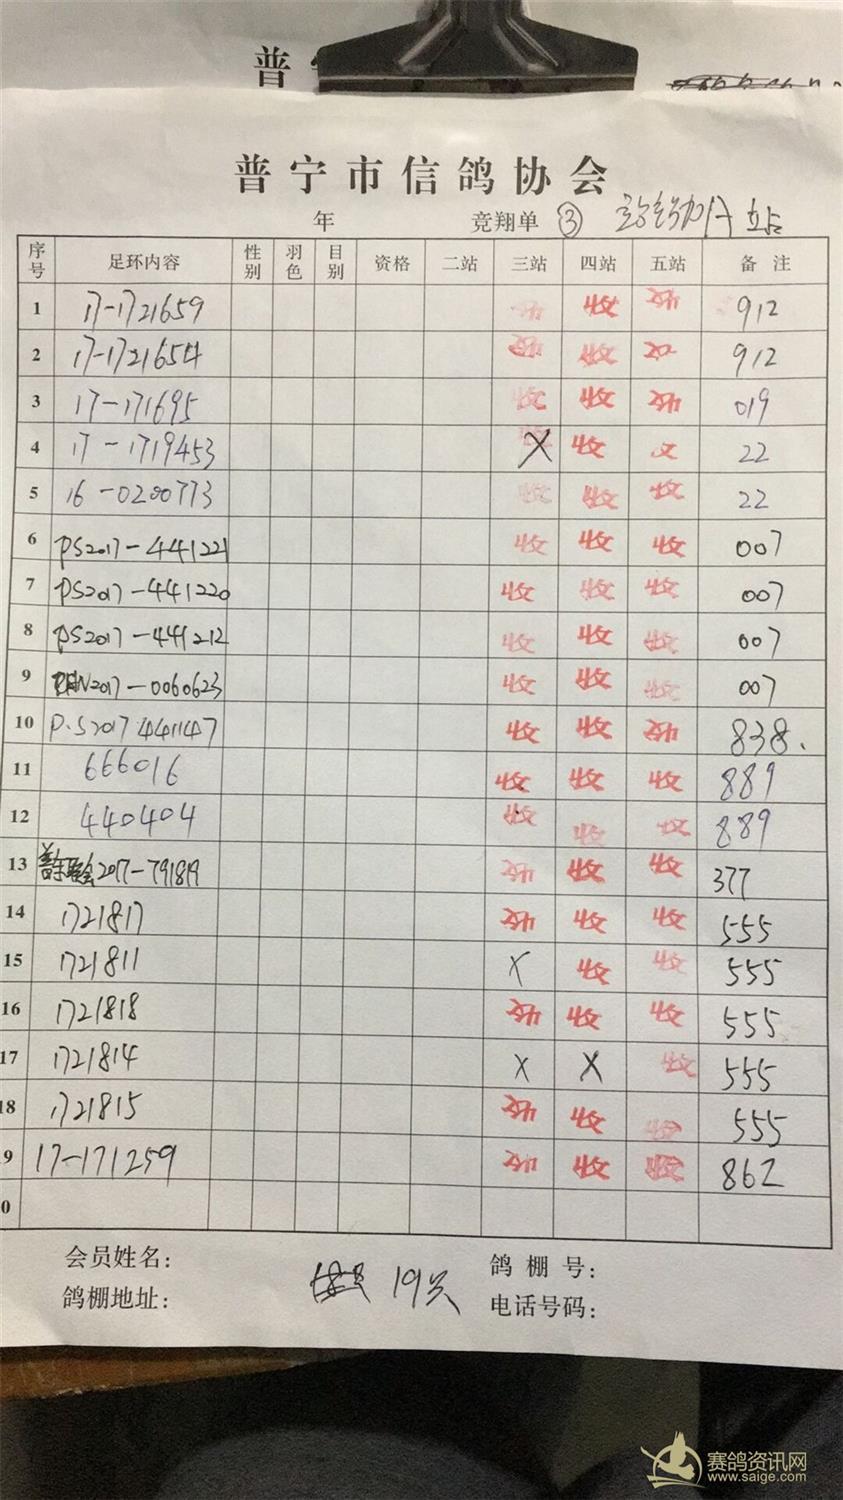 普
普宁市信鸽协会
年 竞翔单 ③
序号 足环内容 性别 羽色 目别 资格 二站 三站 四站 五站 备 注
1 17-1721659 收 收 收 912
2 17-1721654 收 收 收 912
3 17-171695 收 收 收 019
4 17-1719453 X 收 收 22
5 16-0200773 收 收 收 22
6 PS2017-441221 收 收 收 007
7 PS2017-441220 收 收 收 007
8 PS2017-441212 收 收 收 007
9 2017-0060623 收 收 收 007
10 P.S2017 4411147 收 收 收 838.
11 666016 收 收 收 889
12 440404 收 收 收 889
13 2017-791819 收 收 收 377
14 1721817 收 收 收 555
15 1721811 X 收 收 555
16 1721818 收 收 收 555
17 1721814 X X 收 555
18 1721815 收 收 收 555
9 17-171259 收 收 收 862
0
会员姓名： 鸽 棚 号：
鸽棚地址： 19只 电话号码：
赛鸽资讯网
www.saige.com